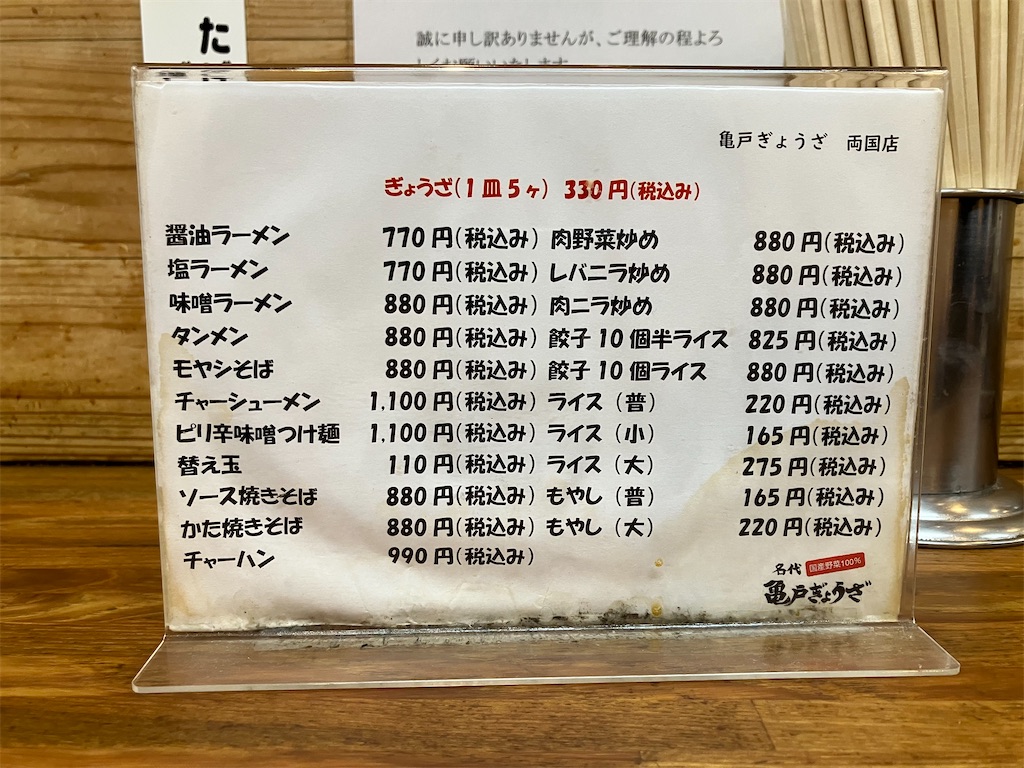 た
誠に申し訳ありませんが、ご理解の程よろ
しくお願いいたします
亀戸ぎょうざ 両国店
ぎょうざ(1皿5ヶ) 330円(税込み)
醤油ラーメン 770円(税込み) 肉野菜炒め 880円(税込み)
塩ラーメン 770円(税込み) レバニラ炒め 880円(税込み)
味噌ラーメン 880円(税込み) 肉ニラ炒め 880円(税込み)
タンメン 880円(税込み) 餃子10個半ライス 825円(税込み)
モヤシそば 880円(税込み) 餃子10個ライス 880円(税込み)
チャーシューメン 1,100円(税込み) ライス(普) 220円(税込み)
ピリ辛味噌つけ麺 1,100円(税込み) ライス(小) 165円(税込み)
替え玉 110円(税込み) ライス(大) 275円(税込み)
ソース焼きそば 880円(税込み) もやし(普) 165円(税込み)
かた焼きそば 880円(税込み) もやし(大) 220円(税込み)
チャーハン 990円(税込み)
名代 国産野菜100%
亀戸ぎょうざ